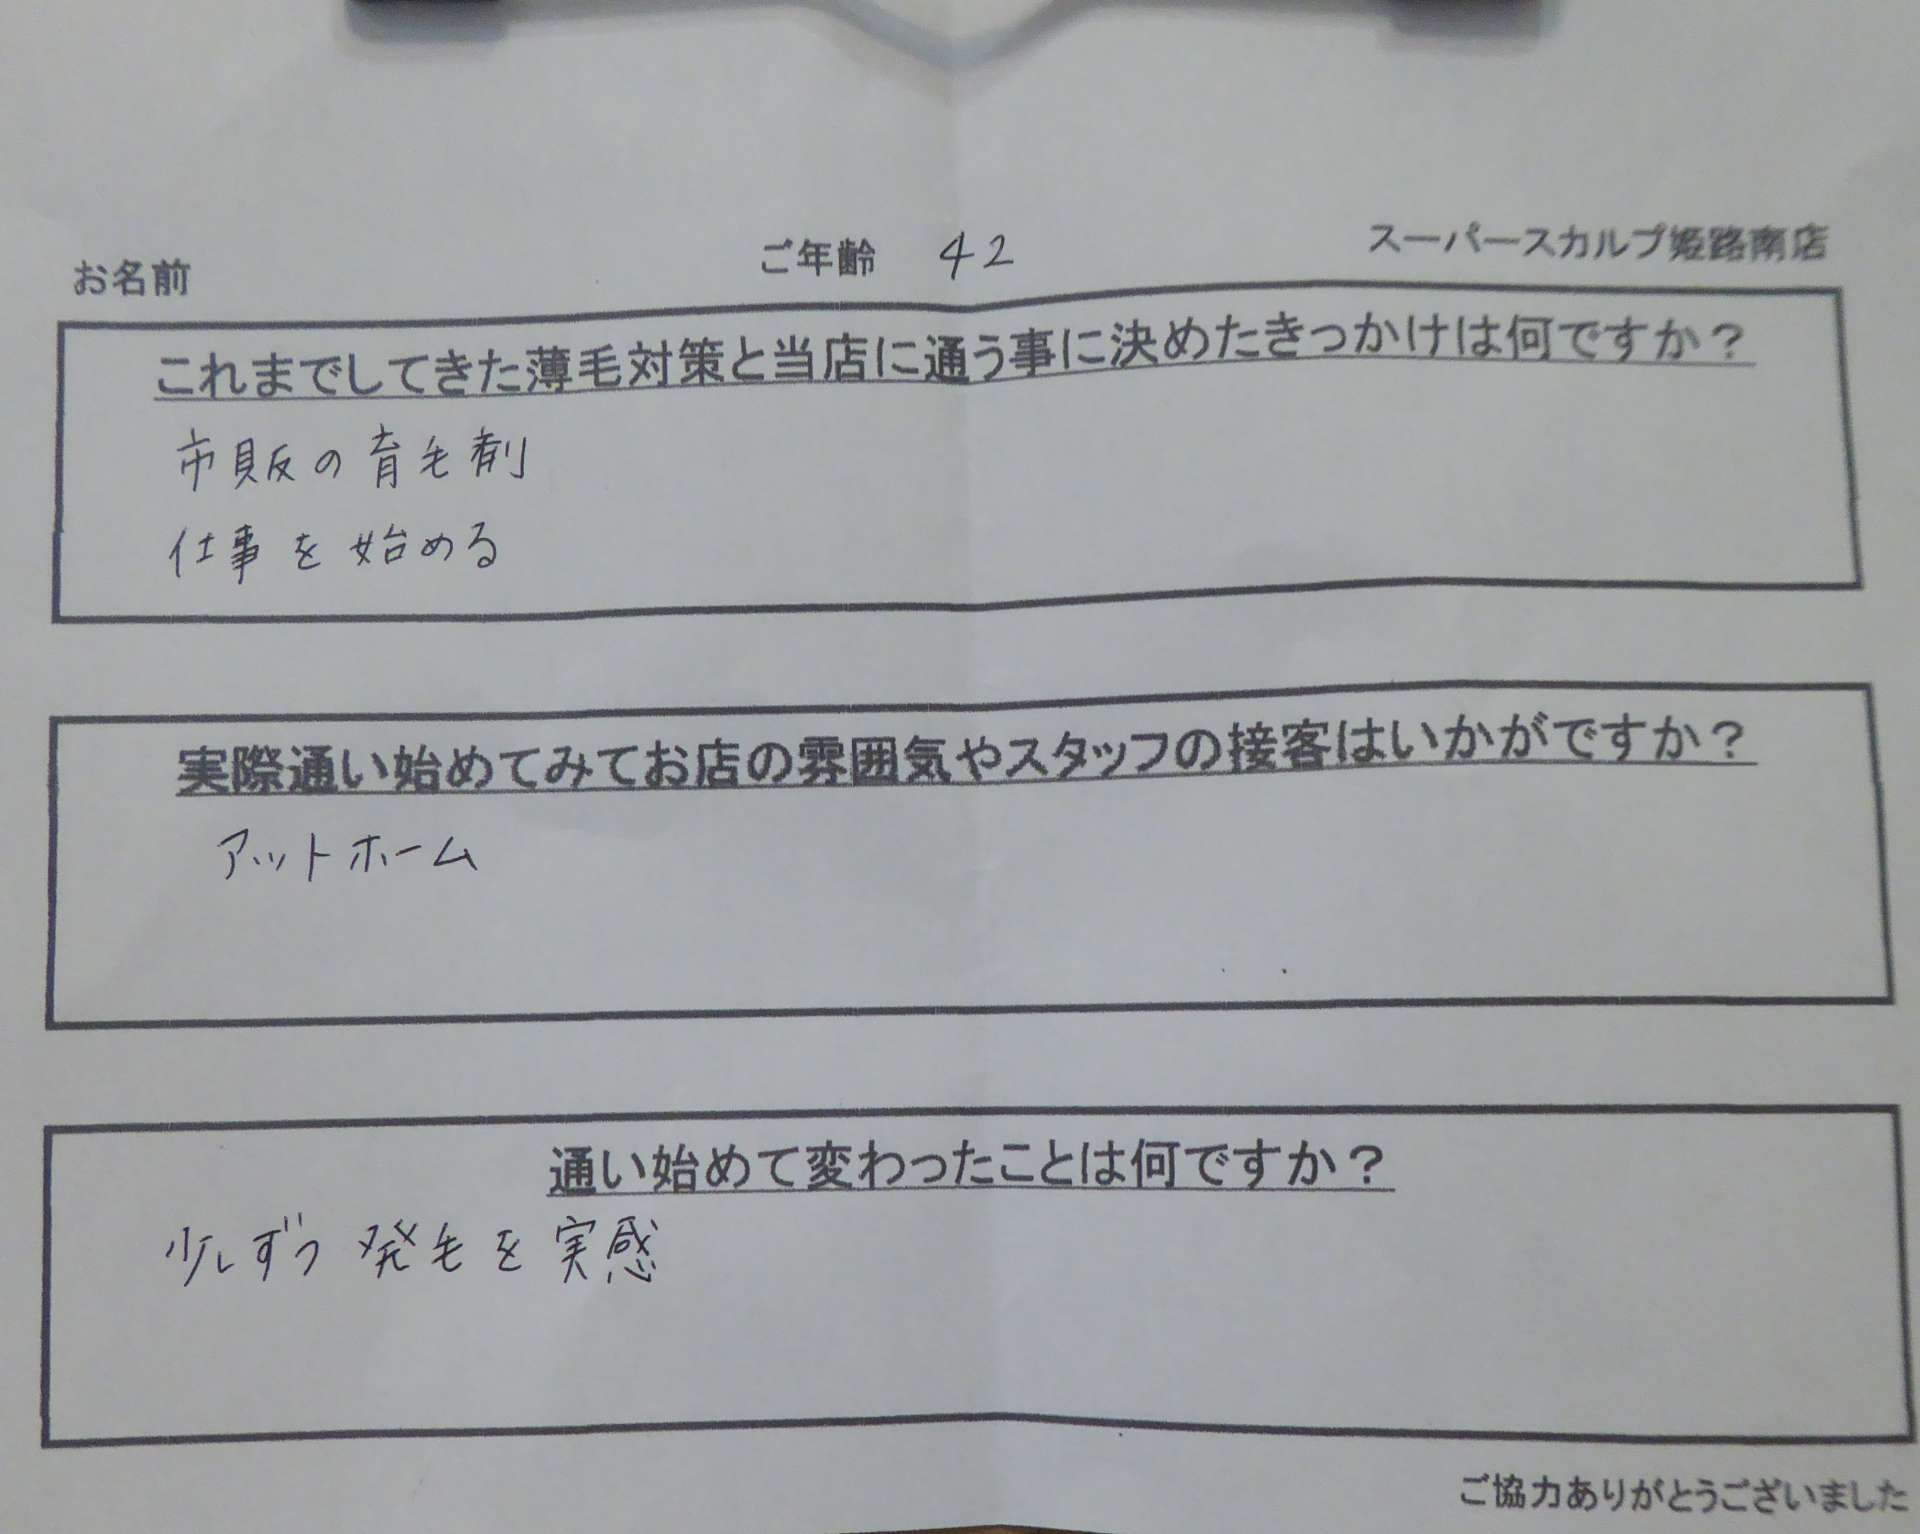 お名前 ご年齢 42 スーパースカルプ姫路南店
これまでしてきた薄毛対策と当店に通う事に決めたきっかけは何ですか？
市販の育毛剤
仕事を始める
実際通い始めてみてお店の雰囲気やスタッフの接客はいかがですか？
アットホーム
通い始めて変わったことは何ですか？
少しずつ発毛を実感
ご協力ありがとうございました